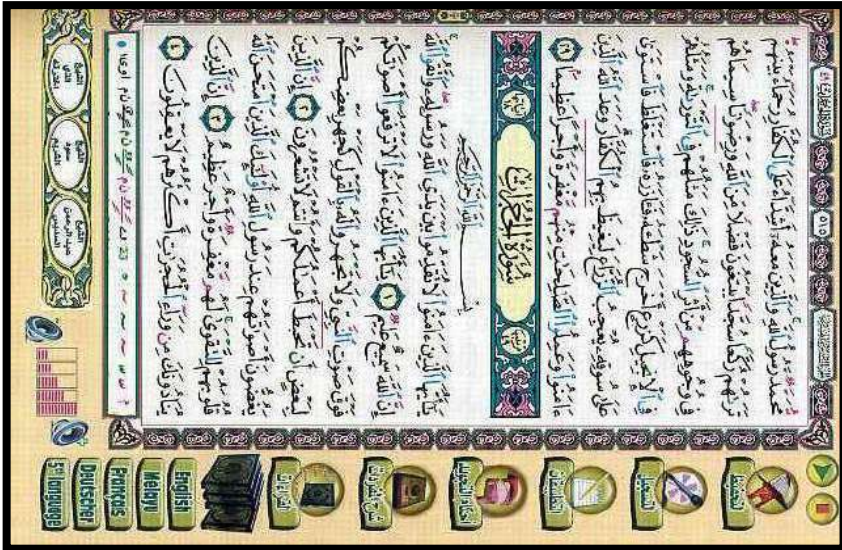 سورة الحجرات ٤٩
٥١٥
مُّحَمَّدٌ رَّسُولُ ٱللَّهِ وَٱلَّذِينَ مَعَهُۥٓ أَشِدَّآءُ عَلَى ٱلْكُفَّارِ رُحَمَآءُ بَيْنَهُمْ
تَرَىٰهُمْ رُكَّعًا سُجَّدًا يَبْتَغُونَ فَضْلًا مِّنَ ٱللَّهِ وَرِضْوَٰنًا سِيمَاهُمْ
فِى وُجُوهِهِم مِّنْ أَثَرِ ٱلسُّجُودِ ذَٰلِكَ مَثَلُهُمْ فِى ٱلتَّوْرَىٰةِ وَمَثَلُهُمْ
فِى ٱلْإِنجِيلِ كَزَرْعٍ أَخْرَجَ شَطْـَٔهُۥ فَـَٔازَرَهُۥ فَٱسْتَغْلَظَ فَٱسْتَوَىٰ
عَلَىٰ سُوقِهِۦ يُعْجِبُ ٱلزُّرَّاعَ لِيَغِيظَ بِهِمُ ٱلْكُفَّارَ وَعَدَ ٱللَّهُ ٱلَّذِينَ
ءَامَنُوا۟ وَعَمِلُوا۟ ٱلصَّٰلِحَٰتِ مِنْهُم مَّغْفِرَةً وَأَجْرًا عَظِيمًۢا ٢٩
سُورَةُ الحُجُرَاتِ
بِسْمِ ٱللَّهِ ٱلرَّحْمَٰنِ ٱلرَّحِيمِ
يَٰٓأَيُّهَا ٱلَّذِينَ ءَامَنُوا۟ لَا تُقَدِّمُوا۟ بَيْنَ يَدَىِ ٱللَّهِ وَرَسُولِهِۦ وَٱتَّقُوا۟ ٱللَّهَ
إِنَّ ٱللَّهَ سَمِيعٌ عَلِيمٌ ١ يَٰٓأَيُّهَا ٱلَّذِينَ ءَامَنُوا۟ لَا تَرْفَعُوٓا۟ أَصْوَٰتَكُمْ
فَوْقَ صَوْتِ ٱلنَّبِىِّ وَلَا تَجْهَرُوا۟ لَهُۥ بِٱلْقَوْلِ كَجَهْرِ بَعْضِكُمْ
لِبَعْضٍ أَن تَحْبَطَ أَعْمَٰلُكُمْ وَأَنتُمْ لَا تَشْعُرُونَ ٢ إِنَّ ٱلَّذِينَ
يَغُضُّونَ أَصْوَٰتَهُمْ عِندَ رَسُولِ ٱللَّهِ أُو۟لَٰٓئِكَ ٱلَّذِينَ ٱمْتَحَنَ ٱللَّهُ
قُلُوبَهُمْ لِلتَّقْوَىٰ لَهُم مَّغْفِرَةٌ وَأَجْرٌ عَظِيمٌ ٣ إِنَّ ٱلَّذِينَ
يُنَادُونَكَ مِن وَرَآءِ ٱلْحُجُرَٰتِ أَكْثَرُهُمْ لَا يَعْقِلُونَ ٤
الشيخ عبد الرحمن السديس
الشيخ سعود الشريم
الشيخ
التسجيل
التطبيقات
أحكام التجويد
شرح المفردات
القراءات
English
Melayu
Français
Deutscher
5th language